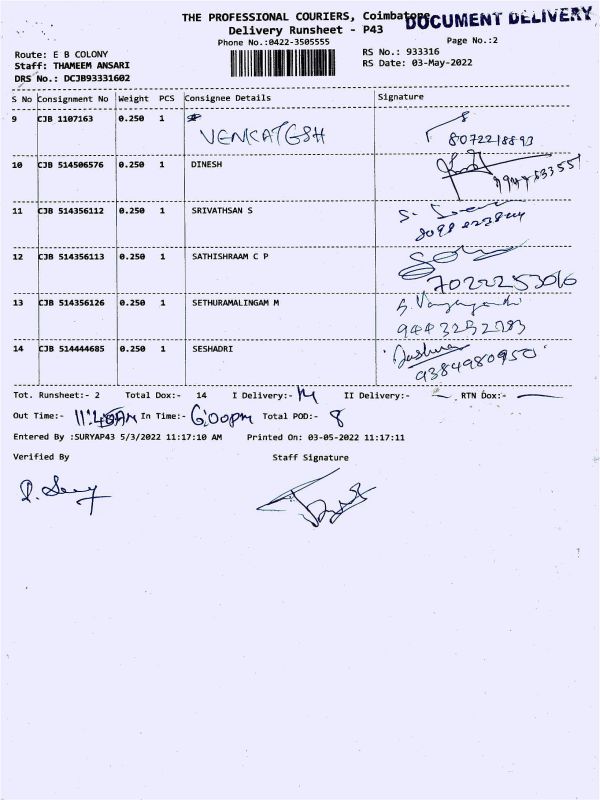 THE PROFESSIONAL COURIERS, Coimbatore
DOCUMENT DELIVERY
Delivery Runsheet - P43
Phone No.:0422-3505555
Page No.:2
Route: E B COLONY
RS No.: 933316
Staff: THAMEEM ANSARI
RS Date: 03-May-2022
DRS No.: DCJB93331602
S No Consignment No Weight PCS Consignee Details Signature
9 CJB 1107163 0.250 1 #
VENKATESH
8072218893
10 CJB 514506576 0.250 1 DINESH
11 CJB 514356112 0.250 1 SRIVATHSAN S
12 CJB 514356113 0.250 1 SATHISHRAAM C P
7022253016
13 CJB 514356126 0.250 1 SETHURAMALINGAM M
9443252783
14 CJB 514444685 0.250 1 SESHADRI
9384980950
Tot. Runsheet:- 2 Total Dox:- 14 I Delivery:- 14 II Delivery:- RTN Dox:-
Out Time:- 11:48AM In Time:- 6:00pm Total POD:- 8
Entered By :SURYAP43 5/3/2022 11:17:10 AM Printed On: 03-05-2022 11:17:11
Verified By Staff Signature